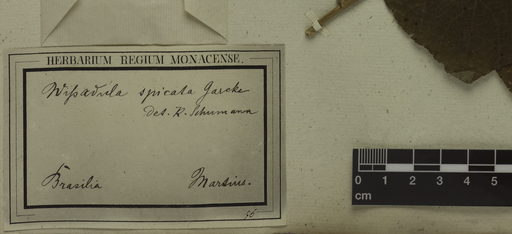 HERBARIUM REGIUM MONACENSE.
Wißadula spicata Garcke
det. K. Schumann
Brasilia Martius.
56
0 1 2 3 4 5
cm